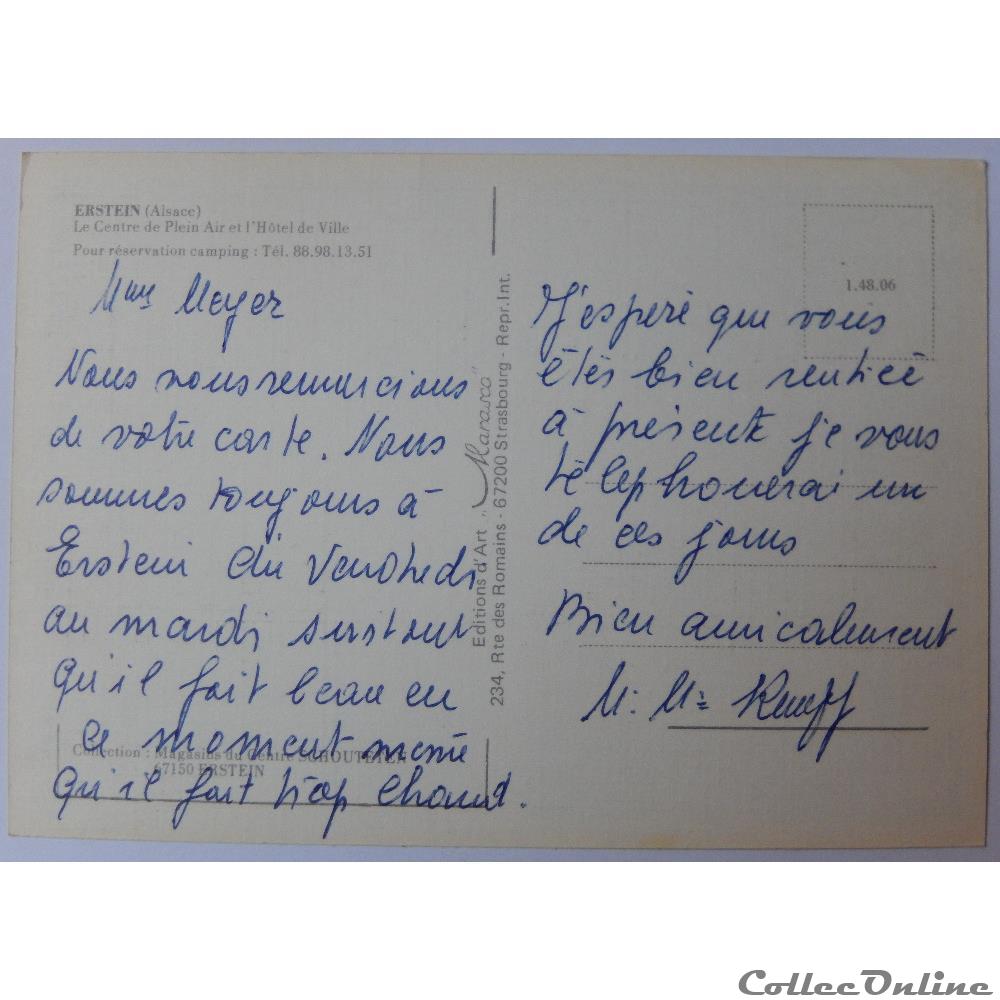 ERSTEIN (Alsace)
Le Centre de Plein Air et l'Hôtel de Ville
Pour réservation camping : Tél. 88.98.13.51
Mme Meyer
Nous vous remercions
de votre carte. Nous
sommes toujours à
Erstein du Vendredi
au mardi surtout
qu'il fait beau en
ce moment meme
qu'il fait trop chaud.
Collection : Magasins du Centre SCHOUTETEN
67150 ERSTEIN
Editions d'Art „Marasco"
234, Rte des Romains - 67200 Strasbourg - Repr. Int.
1.48.06
J'espere que vous
êtes bien rentrée
à présent je vous
télephonerai un
de ces jours
Bien amicalement
M. Me
CollecOnline